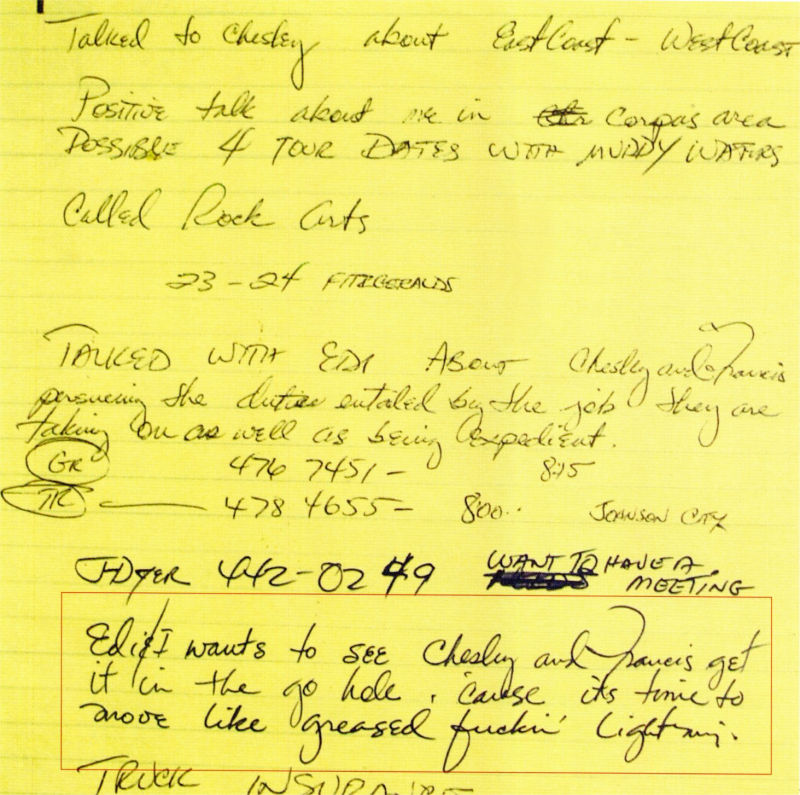 Talked to Chesley about East Coast - West Coast
Positive talk about me in Corpus area
POSSIBLE 4 TOUR DATES WITH MUDDY WATERS
Called Rock Arts
23-24 FITZGERALDS
TALKED WITH EDI ABOUT Chesley and Francis
persueing the duties entailed by the job they are
taking on as well as being expedient.
GR 476 7451- 8:15
TR 478 4655- 800.. JOHNSON CITY
J-DYER 442-0249 WANT TO HAVE A
MEETING
Edi & I wants to see Chesley and Francis get
it in the go hole, 'cause its time to
move like greased fuckin' lightning.
TRUCK INSURANCE